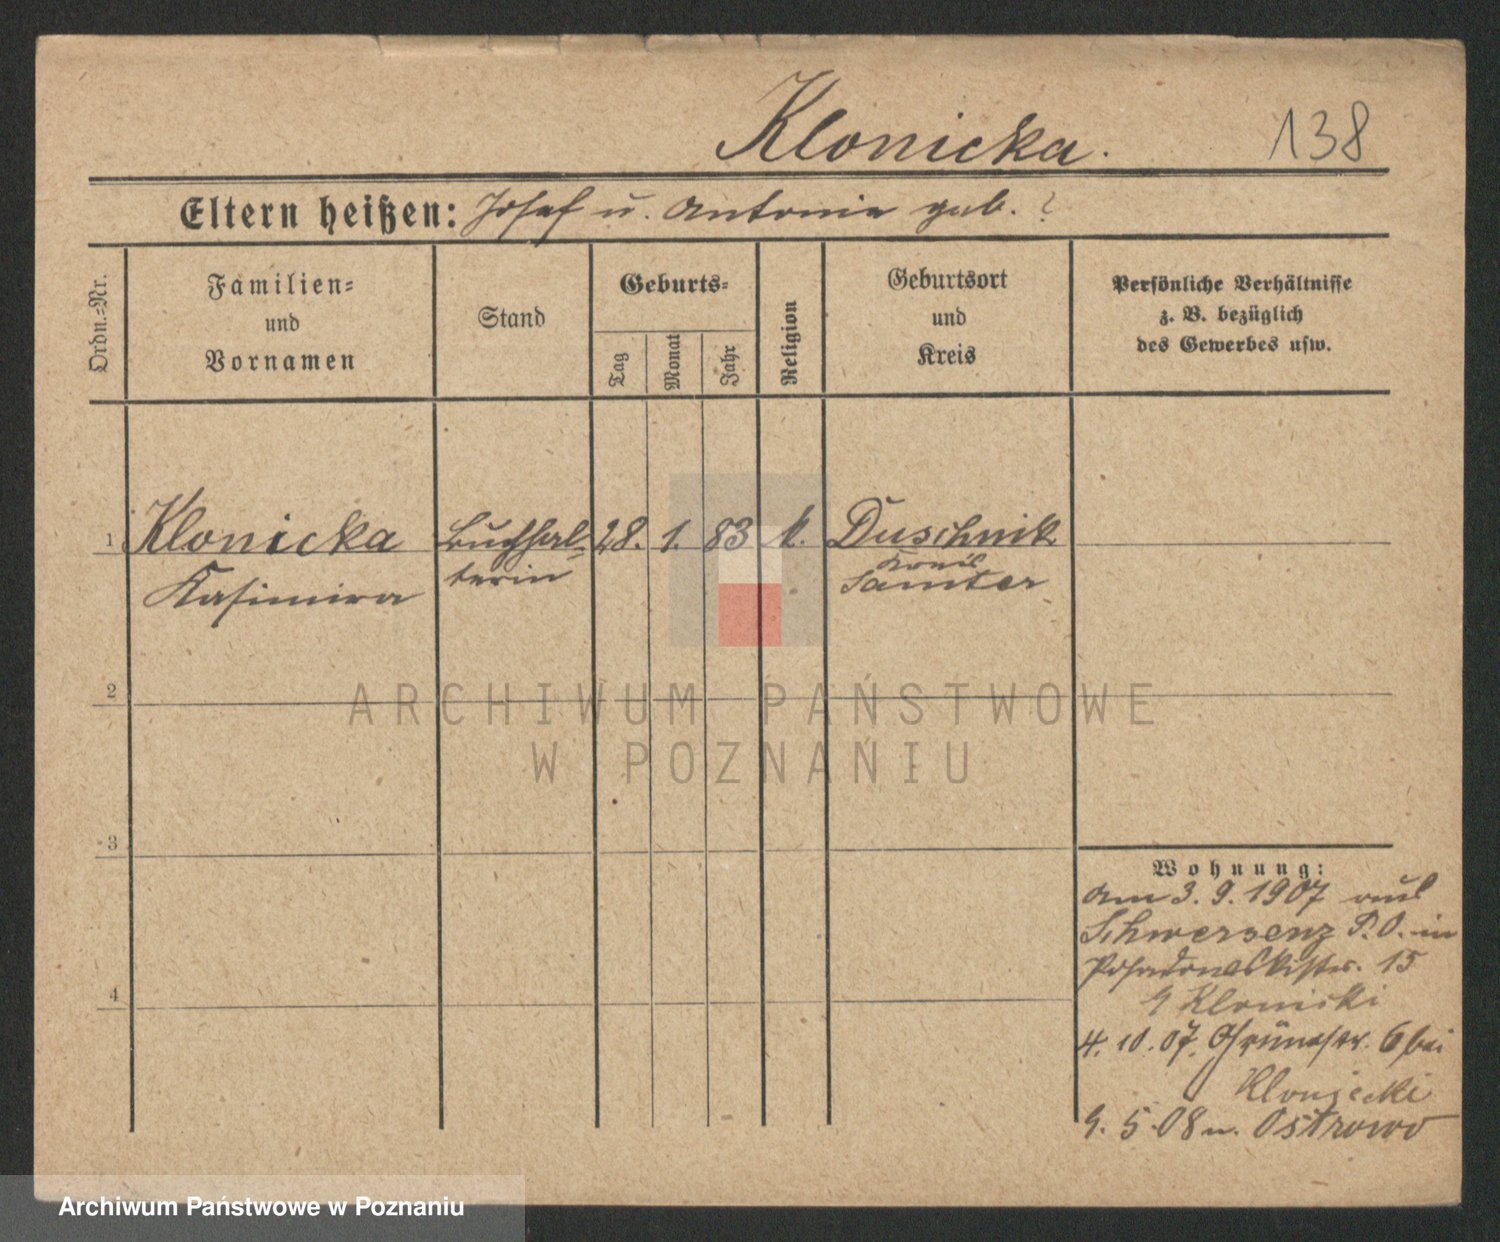 Klonicka. 138
Eltern heißen: Josef u. Antonie geb. ?
Ordn.-Nr.
Familien-
und
Vornamen
Stand
Geburts-
Tag
Monat
Jahr
Religion
Geburtsort
und
Kreis
Persönliche Verhältnisse
z. B. bezüglich
des Gewerbes usw.
1 Klonicka Buchhal- 28. 1. 83 k. Duschnik
Kasimira terin Kreis
Samter
2
ARCHIWUM PAŃSTWOWE
W POZNANIU
3
Wohnung:
am 3. 9. 1907 aus
Schwersenz P. O. in
4
Posadowskistr. 15
Klonicki
4. 10. 07. Grünestr. 6 bei
Klonjecki
9. 5. 08 n. Ostrowo
Archiwum Państwowe w Poznaniu